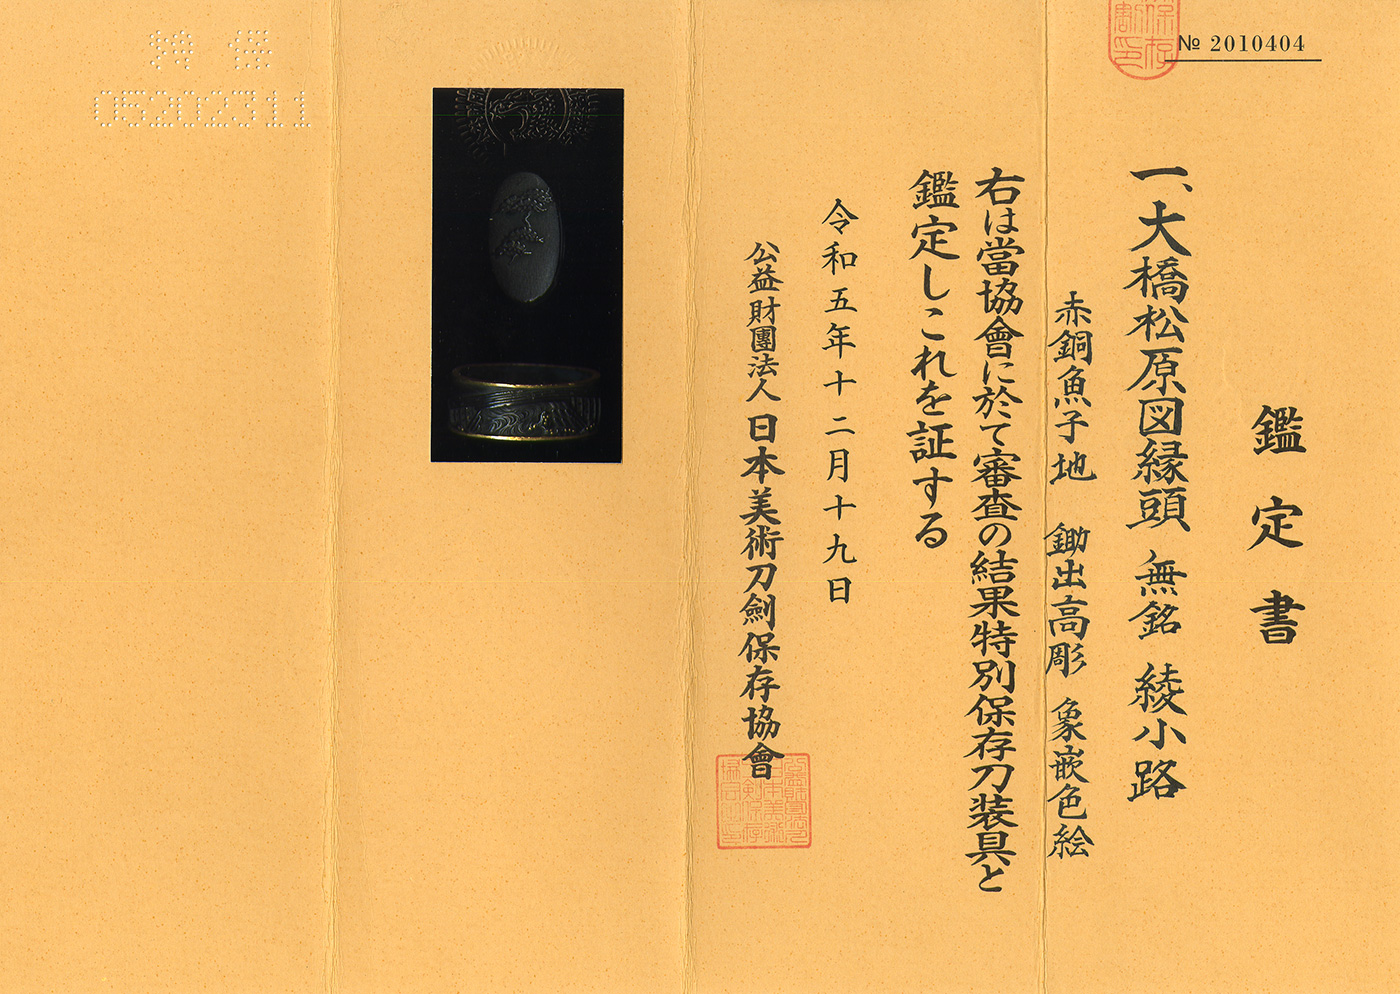 № 2010404
鑑定書
一、大橋松原図縁頭 無銘 綾小路
赤銅魚子地 鋤出高彫 象嵌色絵
右は當協會に於て審査の結果特別保存刀装具と
鑑定しこれを証する
令和五年十二月十九日
公益財團法人 日本美術刀劍保存協會
05202311